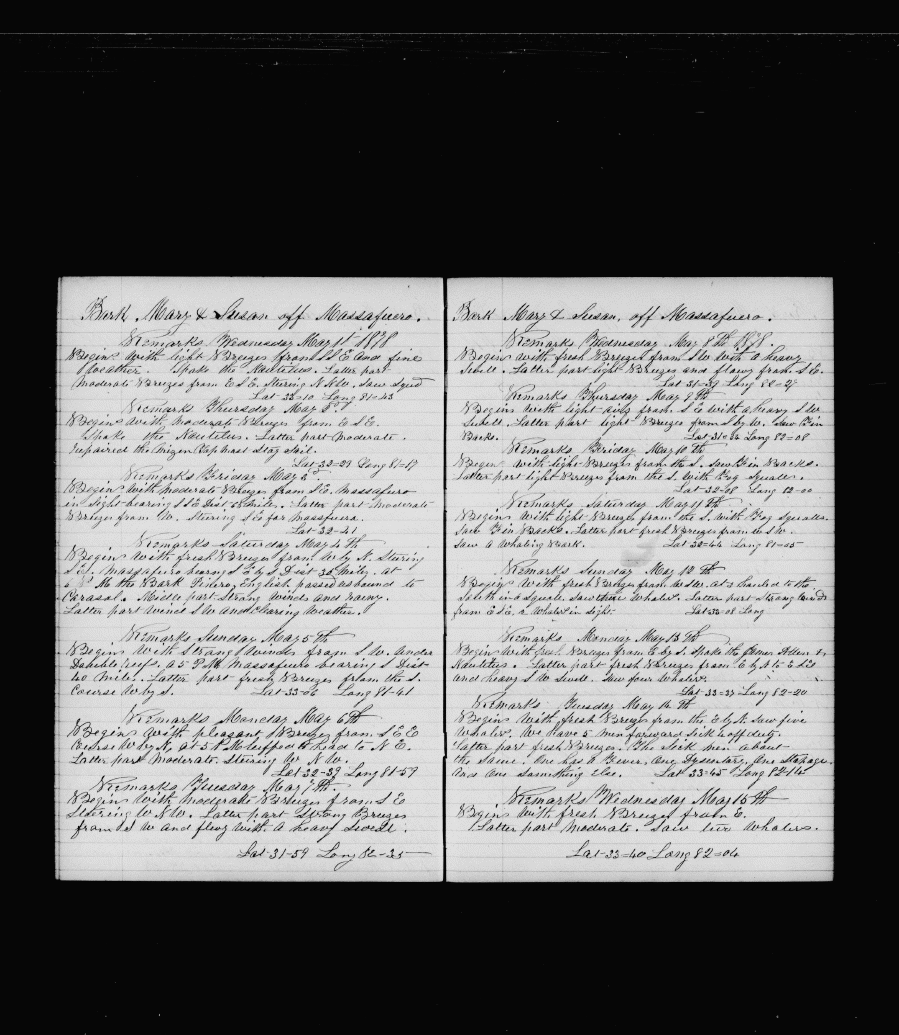 Bark Mary & Susan off Massafuero.
Remarks Wednesday May 1st 1878
Begins with light Breezes from S E and fine
Weather. Spoke the Nautelus. Latter part
moderate Breezes from E S E. Stering N N W. Saw Squid
Lat 33=10 Long 81=43
Remarks Thursday May 2
Begins with moderate Breezes from E S E.
Spoke the Nautelus. Latter part moderate.
repaired the Mizen Top mast Stay sail.
Lat 32=29 Long 81=17
Remarks Friday May 3
Begins with moderate Breezes from S E. Massafuro
in Sight bearing S E Dist mile. Latter part moderate
Breezes from W. Stering S E for massfuera.
Lat 32=41
Remarks Saturday May 4th
Begins with fresh Breezes from W by N. Stering
S E. Massafuro bearing S E by S Dist 35 mile. at
M the Bark English passed us bound to
Midle part Strong winds and rainy.
Latter part wind S W and clearing Weather.
Remarks Sunday May 5th
Begins with Strong Winds from S W. under
Double reefs. at 5 P M Massafuro bearing S Dist
40 mile. Latter part fresh Breezes from the S.
Course W by S. Lat 33=00 Long 81=41
Remarks Monday May 6th
Begins with pleasant Breezes from S E E
Course W by N. at 5 P M luffed to head to N E.
Latter part Moderate. Stering W N W.
Lat 32-39 Long 81-59
Remarks Tuesday May 7th.
Begins with moderate Breezes from S E
Stering W N W. Latter part Strong Breezes
from S W and flawy with a heavy Swell.
Lat 31-59 Long 82-35
Bark Mary & Susan, off Massafuero.
Remarks Wednesday May 8th 1878
Begins with fresh Breezes from S W with a heavy
Swell. Latter part light Breezes and flawy from S E.
Lat 31-39 Long 82=27
Remarks Thursday May 9th
Begins with light airs from S E with a heavy S W
Swell. Latter part light Breezes from S by W. Saw Fin
Backs. Lat 31=36 Long 82=08
Remarks Friday May 10th
Begin with light Breezes from the S. Saw Fin Backs.
Latter part light Breezes from the S. with Fog Squalls.
Lat 32-08 Long 82-00
Remarks Saturday May 11th
Begins with light Breezes from the S. with Fog Squalls.
Saw Fin Backs. Latter part fresh Breezes from S W.
Saw a Whaling Bark. Lat 32=44 Long 81=55
Remarks Sunday May 12th
Begins with fresh Breezes from W S W. at 2 hauled to the
South in a Squall. Saw three Whalers. Latter part Strong Winds
from E S E. 2 Whalers in sight. Lat 33=08 Long
Remarks Monday May 13th
Begins with fresh Breezes from E by S. Spoke the James Allen &
Nautelus. Latter part fresh Breezes from E by S to E S E
and heavy S W Swell. Saw four Whalers.
Lat 33=37 Long 82-20
Remarks Tuesday May 14th
Begins with fresh Breezes from the E by N. Saw five
Whalers. We have 5 men forward sick & off duty.
Latter part fresh Breezes. The Sick men about
the Same. One has a Fever, One Dysentary, One Stopage,
and One Something else. Lat 33-45 Long 82-14
Remarks Wednesday May 15th
Begins with fresh Breezes from E.
Latter part Moderate. Saw two Whalers.
Lat-33=40 Long 82=04